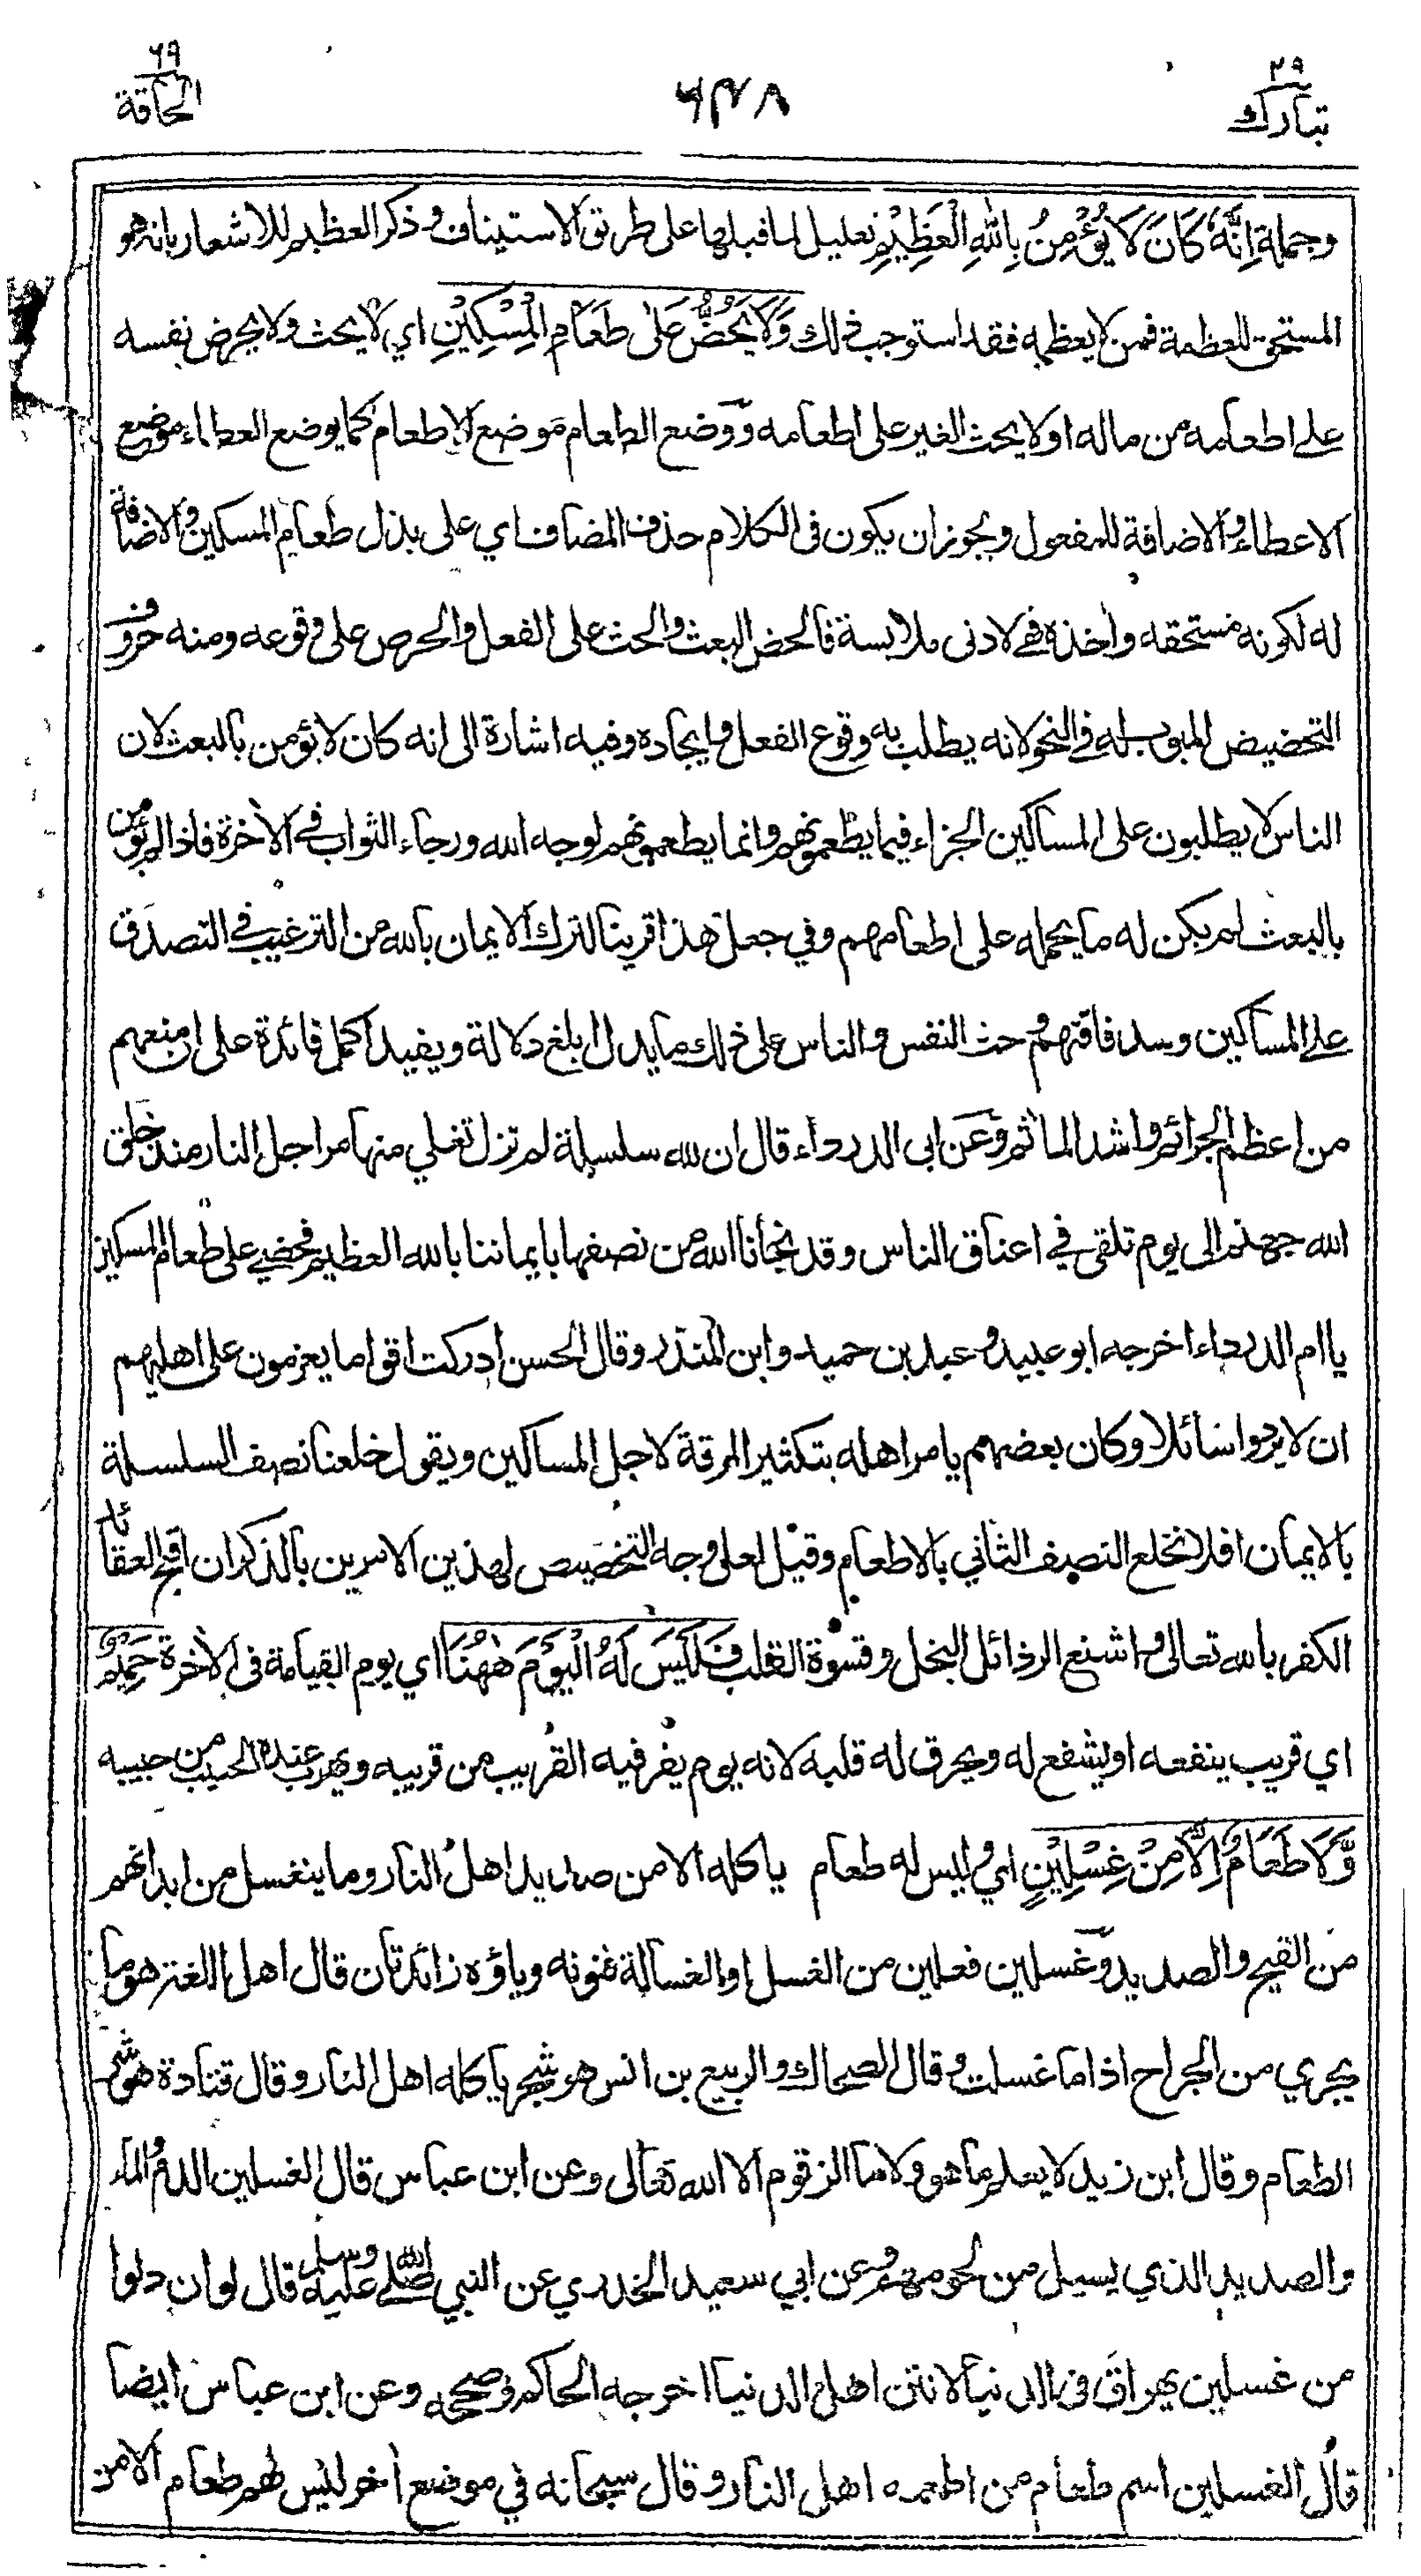 ٢٩
تبارك
٦٣٨
٦٩
الحاقة
وجملة اِنَّهٗ كَانَ لَا يُؤْمِنُ بِاللّٰهِ الْعَظِيْمِ تعليل لما قبلها على طريق الاستيناف وذكر العظيم للاشعار بانه هو
المستحق للعظمة فمن لا يعظمه فقد استوجب ذلك وَلَا يَحُضُّ عَلٰى طَعَامِ الْمِسْكِيْنِ اي لا يحث ولا يحرض نفسه
على اطعامه من ماله او لا يحث الغير على اطعامه ووضع الطعام موضع الاطعام كما يوضع العطاء موضع
الاعطاء والاضافة للمفعول ويجوز ان يكون فى الكلام حذف المضاف اي على بذل طعام المسكين والاضافة
له لكونه مستحقه واخذه فهي لادنى ملابسة فالحض البعث والحث على الفعل والحرص على وقوعه ومنه حروف
التحضيض المبوب له في النحو لانه يطلب به وقوع الفعل وايجاده وفيه اشارة الى انه كان لا يؤمن بالبعث لان
الناس لا يطلبون على المساكين الجزاء فيما يطعمونهم وانما يطعمونهم لوجه الله ورجاء الثواب في الاخرة فاذا لم يؤمن
بالبعث لم يكن له ما يحمله على اطعامهم وفي جعل هذا قرينا لترك الايمان بالله من الترغيب في التصدق
على المساكين وسد فاقتهم وحث النفس والناس على ذلك ما يدل ابلغ دلالة ويفيد اكمل فائدة على ان منعهم
من اعظم الجرائم واشد المآثم وعن ابى الدرداء قال ان لله سلسلة لم تزل تغلي منها مراجل النار منذ خلق
الله جهنم الى يوم تلقى في اعناق الناس وقد نجانا الله من نصفها بايماننا بالله العظيم فحضي على طعام المسكين
يا ام الدرداء اخرجه ابو عبيد وعبد بن حميد وابن المنذر وقال الحسن ادركت اقواما يعزمون على اهليهم
ان لا يردوا سائلا وكان بعضهم يامر اهله بتكثير المرقة لاجل المساكين ويقول خلعنا نصف السلسلة
بالايمان افلا نخلع النصف الثاني بالاطعام وقيل لعل وجه التخصيص لهذين الامرين بالذكر ان اقبح العقائد
الكفر بالله تعالى واشنع الرذائل البخل وقسوة القلب فَلَيْسَ لَهُ الْيَوْمَ هٰهُنَا اي يوم القيامة فى الاخرة حَمِيْمٌ
اي قريب ينفعه او يشفع له ويحرق له قلبه لانه يوم يفر فيه القريب من قريبه ويهرب عنده الحبيب من حبيبه
وَّلَا طَعَامٌ اِلَّا مِنْ غِسْلِيْنٍ اي وليس له طعام ياكله الا من صديد اهل النار وما ينغسل من ابدانهم
من القيح والصديد وغسلين فعلين من الغسل او الغسالة فنونه وياؤه زائدتان قال اهل اللغة هو ما
يجري من الجراح اذا ما غسلت وقال الضحاك والربيع بن انس هو شجر ياكله اهل النار وقال قتادة هو شر
الطعام وقال ابن زيد لا يعلم ما هو ولا ما الزقوم الا الله تعالى وعن ابن عباس قال الغسلين الدم والماء
والصديد الذي يسيل من لحومهم وعن ابي سعيد الخدري عن النبي صلى الله عليه وسلم قال لو ان دلوا
من غسلين يهراق فى الدنيا لانتن اهل الدنيا اخرجه الحاكم وصححه وعن ابن عباس ايضا
قال الغسلين اسم طعام من اطعمه اهل النار وقال سبحانه في موضع اخر ليس لهم طعام الا من